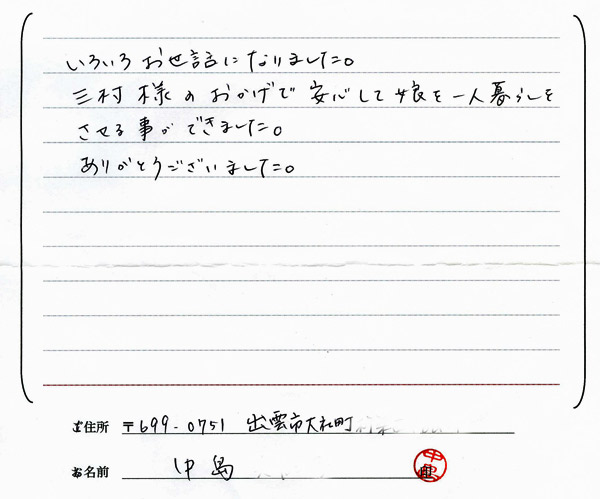 いろいろお世話になりました。
三村様のおかげで安心して娘を一人暮らしを
させる事ができました。
ありがとうございました。
ご住所 〒699-0751 出雲市大社町
お名前 中島 印
中島